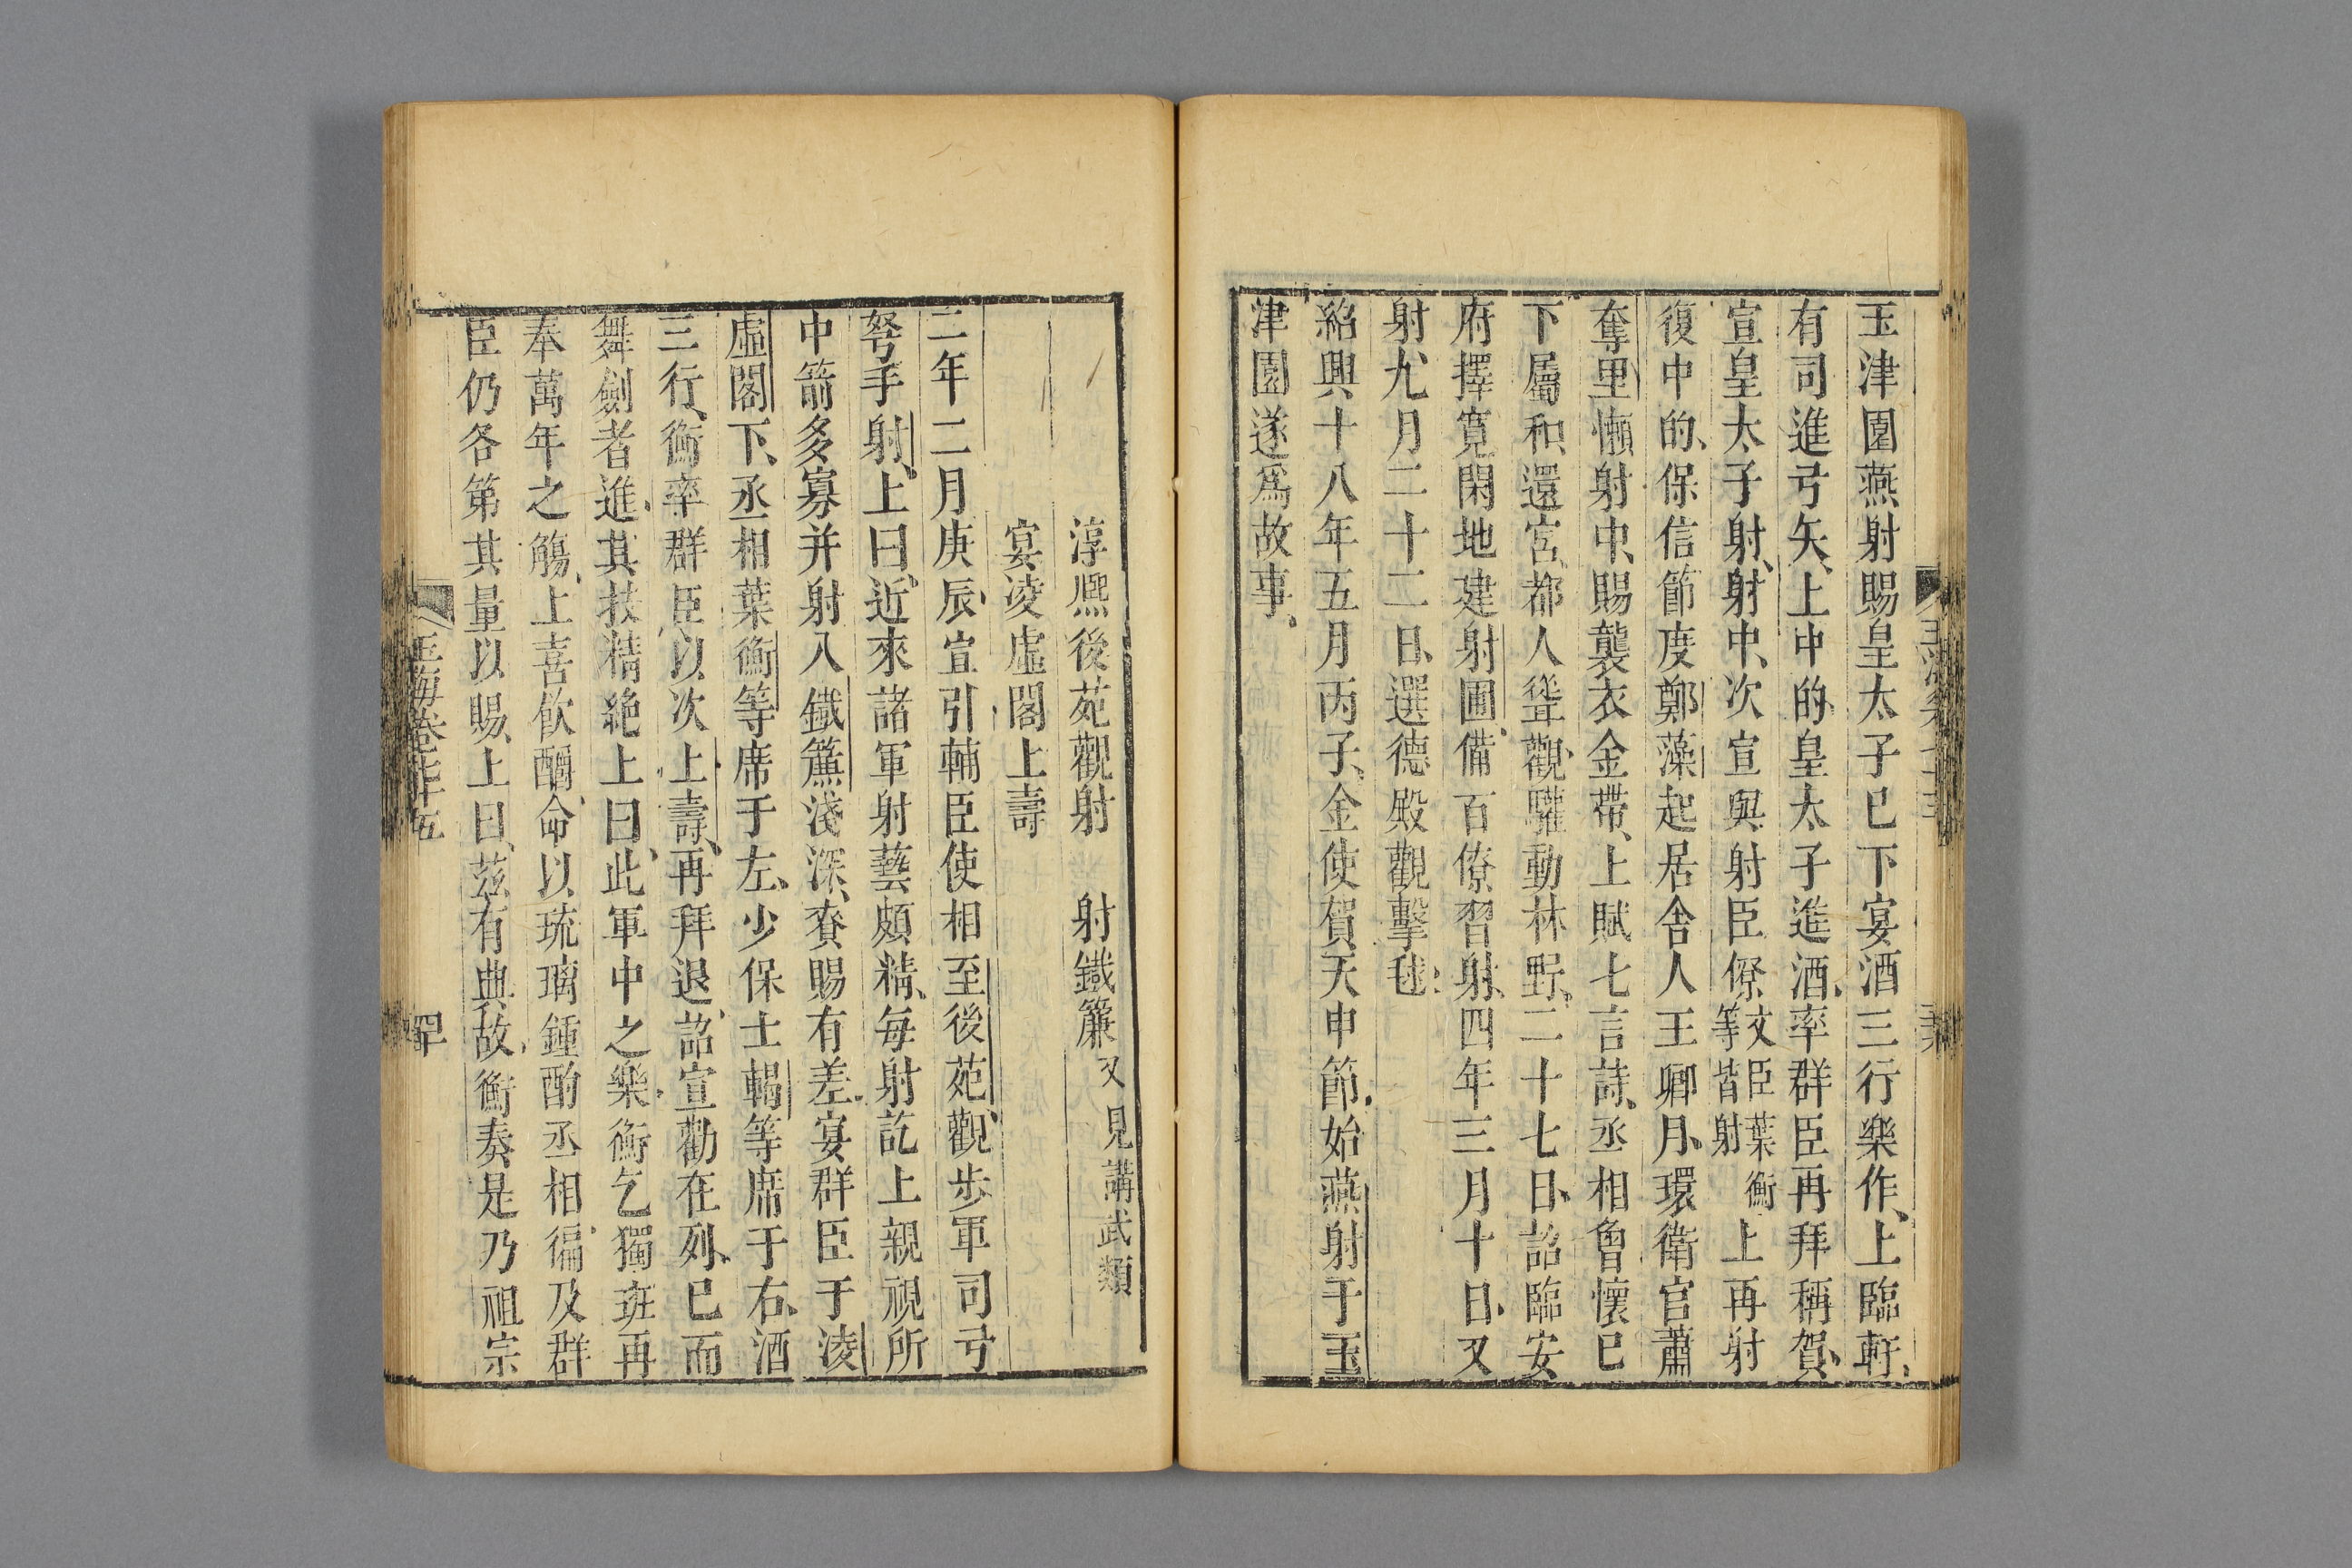 玉津園燕射賜皇太子已下宴酒三行樂作上臨軒
有司進弓矢上中的皇太子進酒率群臣再拜稱賀
宣皇太子射射中次宣與射臣僚文臣葉衡等皆射上再射
復中的保信節度鄭藻起居舍人王卿月環衛官蕭
奪里懶射中賜襲衣金帶上賦七言詩丞相魯懷已
下屬和還宮都人聳觀驩動林野二十七日詔臨安
府擇寬閑地建射圃備百僚習射四年三月十日又
射九月二十二日選德殿觀擊毬
紹興十八年五月丙子金使賀天申節始燕射于玉
津園遂爲故事
淳熈後苑觀射 射鐵簾又見講武類
宴凌虛閣上壽
二年二月庚辰宣引輔臣使相至後苑觀步軍司弓
弩手射上曰近來諸軍射藝頗精每射訖上親視所
中箭多寡并射入鐵簾淺深賚賜有差宴群臣于凌
虛閣下丞相葉衡等席于左少保士輵等席于右酒
三行衡率群臣以次上壽再拜退詔宣勸在列已而
舞劍者進其技精絶上曰此軍中之樂衡乞獨班再
奉萬年之觴上喜飲釂命以琉璃鍾酌丞相徧及群
臣仍各第其量以賜上曰茲有典故衡奏是乃祖宗
玉海卷七十五